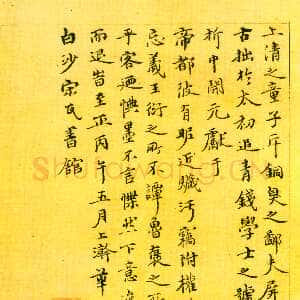 上清之童子斥銅臭之鄙夫屏
古拙於太初追青錢學士之號
析中開元獻子
帝都彼有昵近贓污竊附權
忌義王衍之所譚魯褒之
平客迺慎墨不言慄狀下意
而退旹至正丙午五月上澣華
白沙宗氏書館